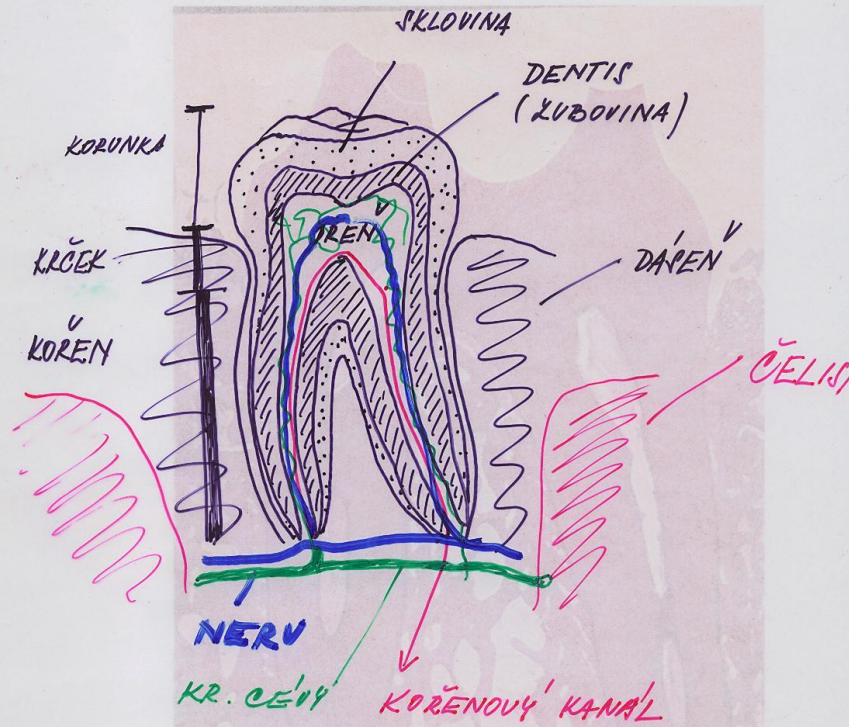 SKLOVINA
DENTIS
(ZUBOVINA)
KORUNKA
DŘEŇ
KRČEK
DÁSEŇ
KOŘEN
ČELIST
NERV
KR. CÉVY
KOŘENOVÝ KANÁL